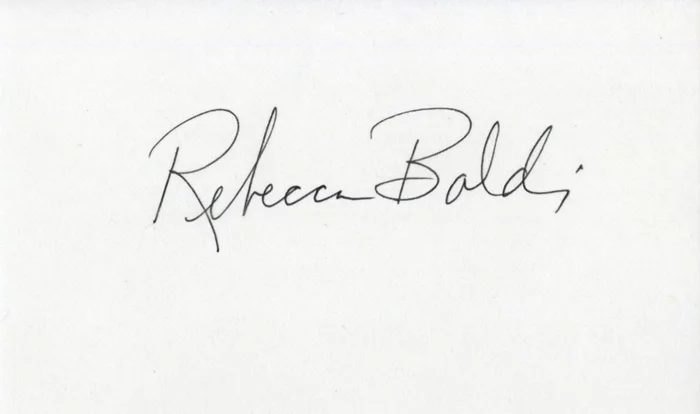 Rebecca Baldi